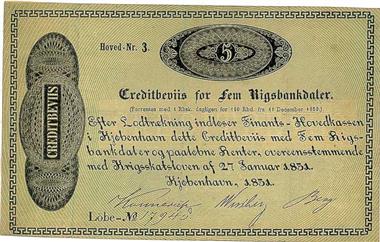 Hoved-Nr. 3.
5
CREDITBEVIIS
Creditbeviis for Fem Rigsbankdaler.
(Forrentes med 4 Rbsk. dagligen for 100 Rbd. fra 1ste December 1850.)
Efter Lodtrækning indløser Finants-Hovedkassen
i Kjøbenhavn dette Creditbeviis med Fem Rigs-
bankdaler og paaløbne Renter, overeensstemmende
med Krigsskatsloven af 27 Januar 1851.
Kjøbenhavn, 1851.
Løbe-No 17945